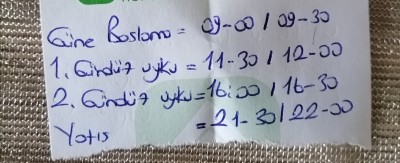 Güne Başlama = 09-00 / 09-30
1. Gündüz uyku = 11-30 / 12-00
2. Gündüz uyku = 16:00 / 16-30
Yatış = 21-30 / 22-00